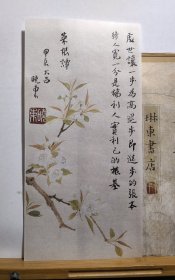 處世讓一步為高退步即進步的張本
待人寬一分是福利人實利己的根基
菜根譚
琳東書店